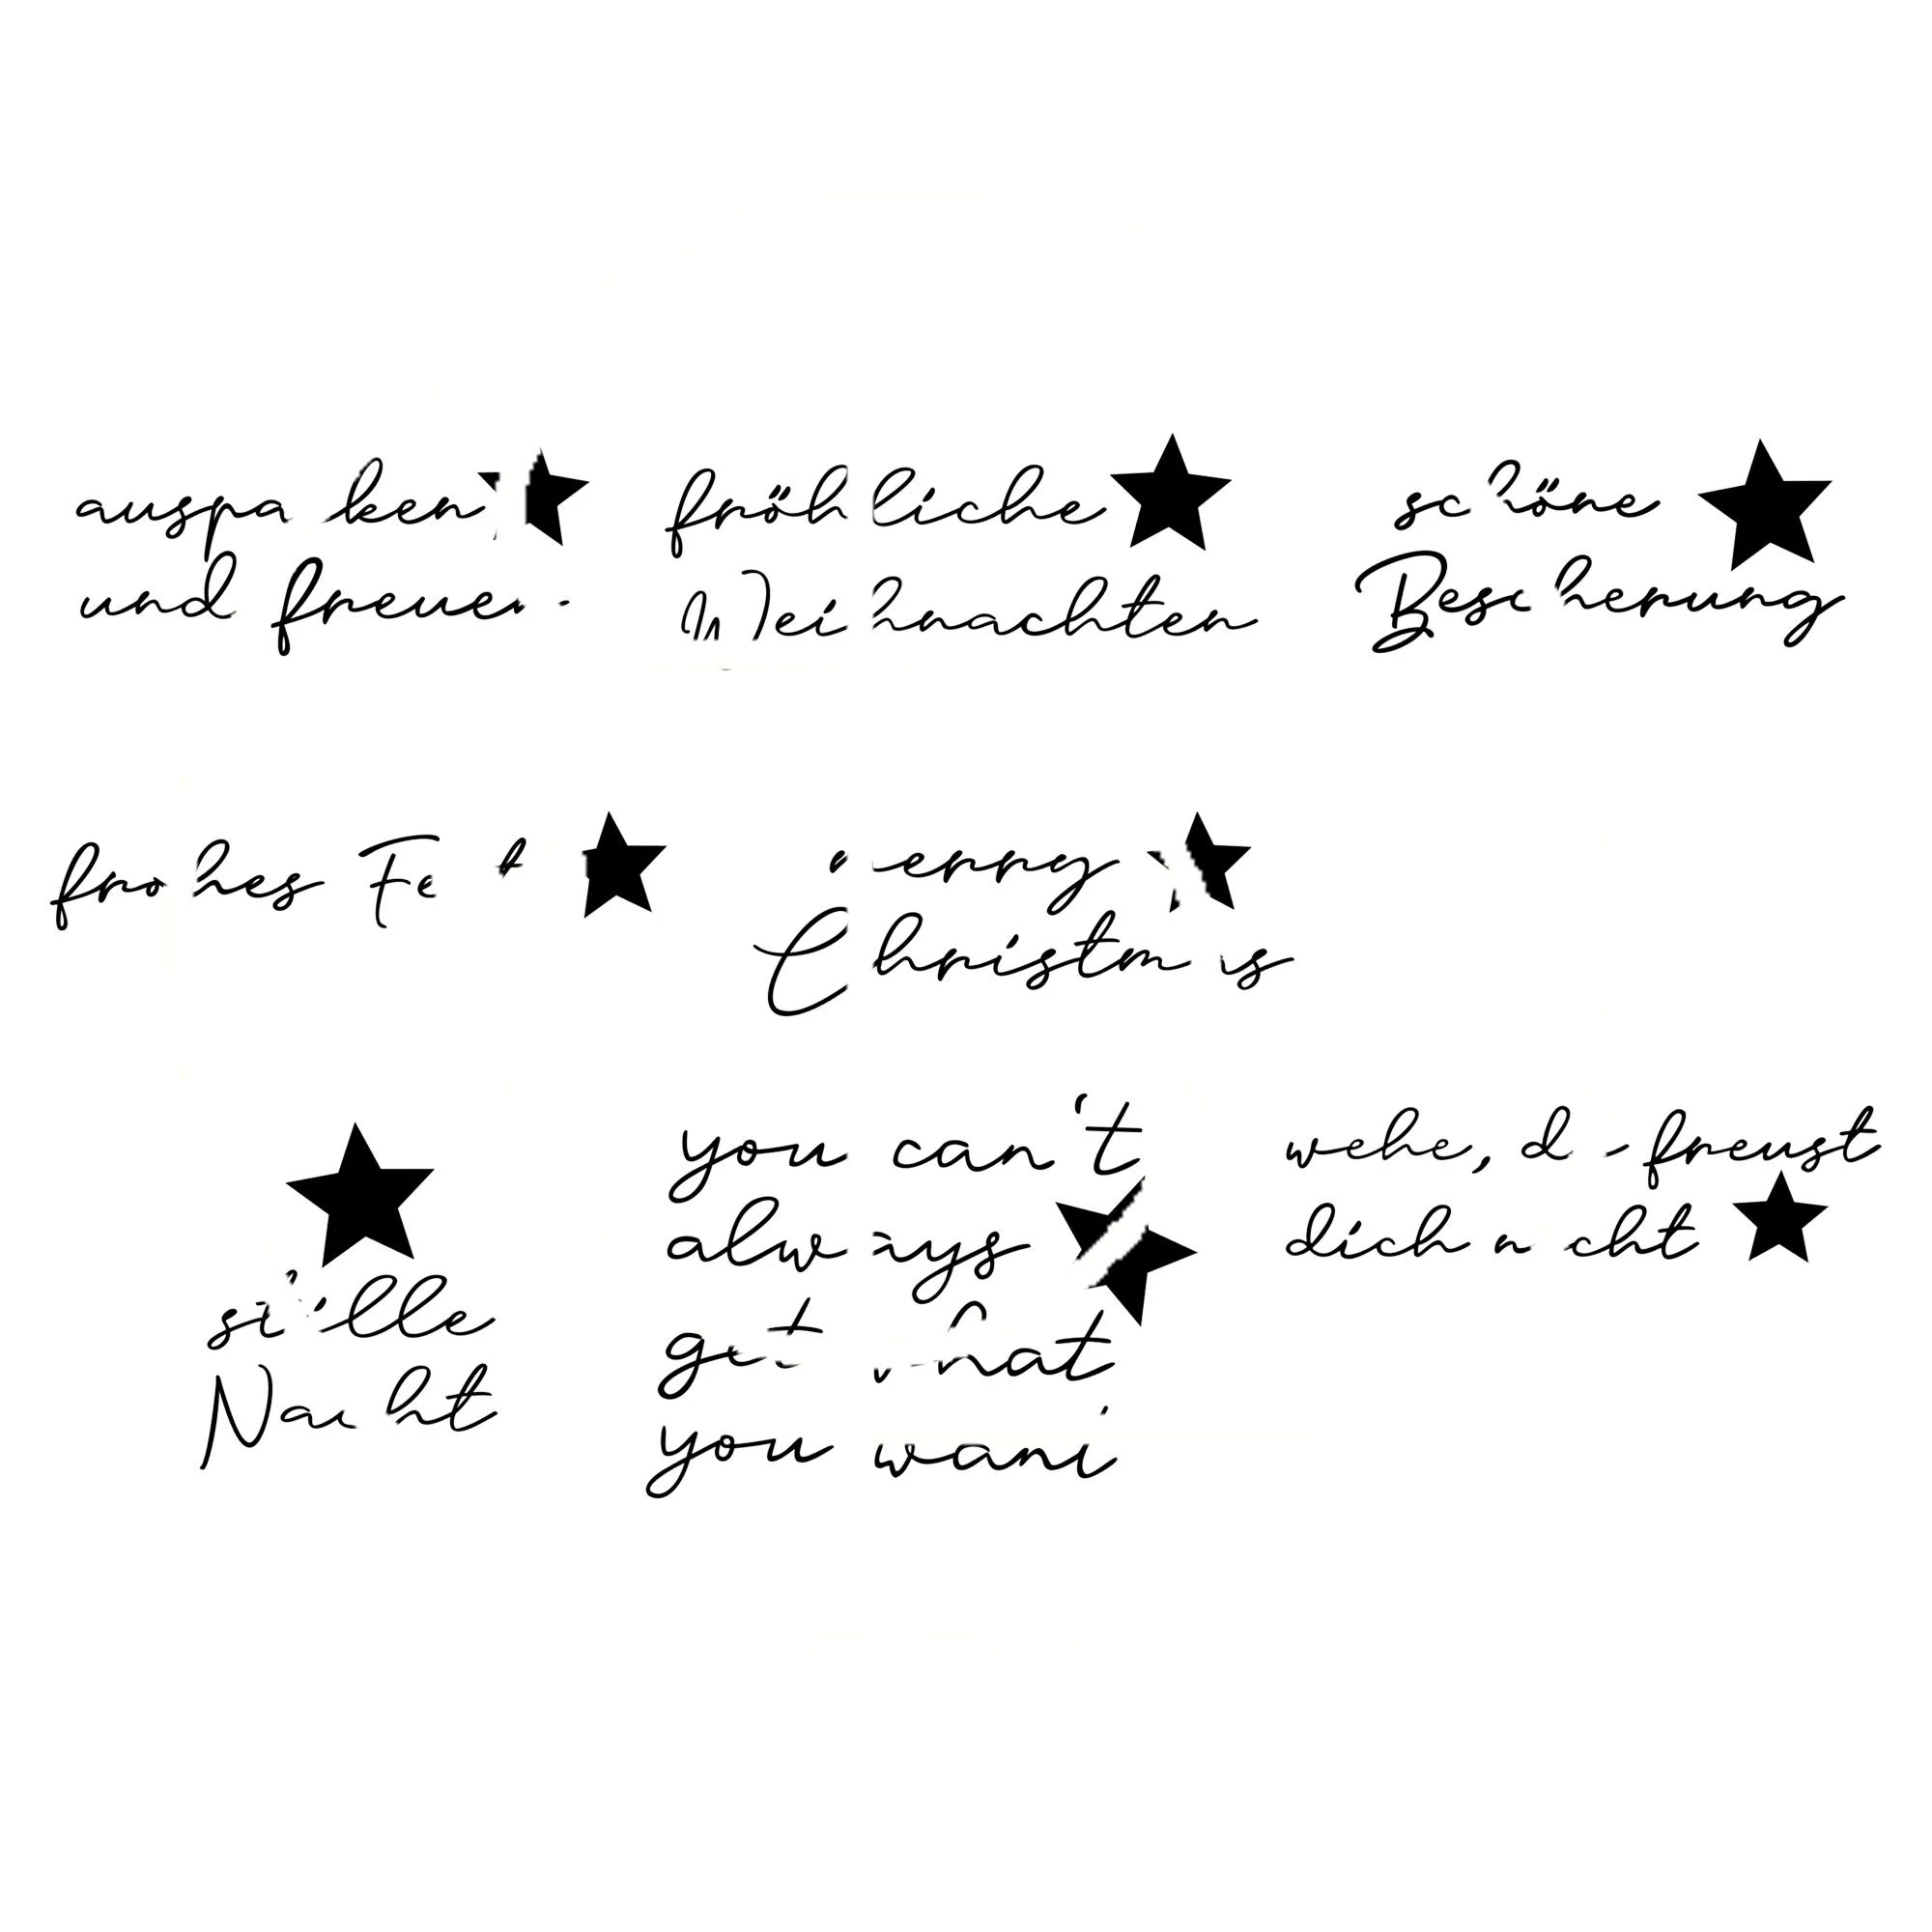 auspacken
und freuen
fröhliche
Weihnachten
schöne
Bescherung
frohes Fest
merry
Christmas
stille
Nacht
you can't
always
get what
you want
wehe, du freust
dich nicht